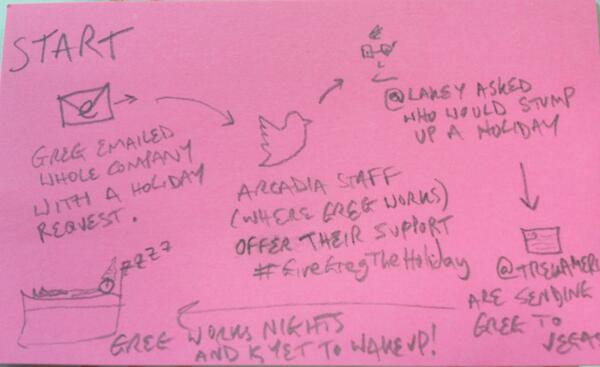 START
e
GREG EMAILED
WHOLE COMPANY
WITH A HOLIDAY
REQUEST.
ARCADIA STAFF
(WHERE GREG WORKS)
OFFER THEIR SUPPORT
#GiveGregTheHoliday
@LAKEY ASKED
WHO WOULD STUMP
UP A HOLIDAY
@TREKAMERI
ARE SENDING
GREG TO
VEGAS
GREG WORKS NIGHTS
AND IS YET TO WAKE UP!
ZZZZ